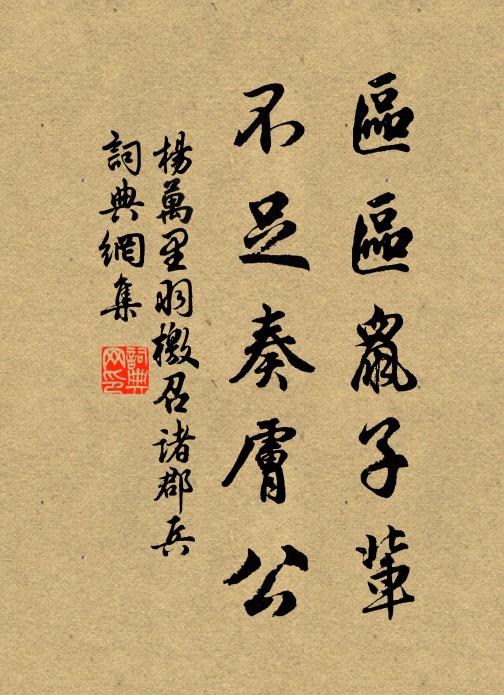 區區鼠子輩
不足奏膚公
楊萬里羽檄召諸郡兵
詞典網集
詞典
网印